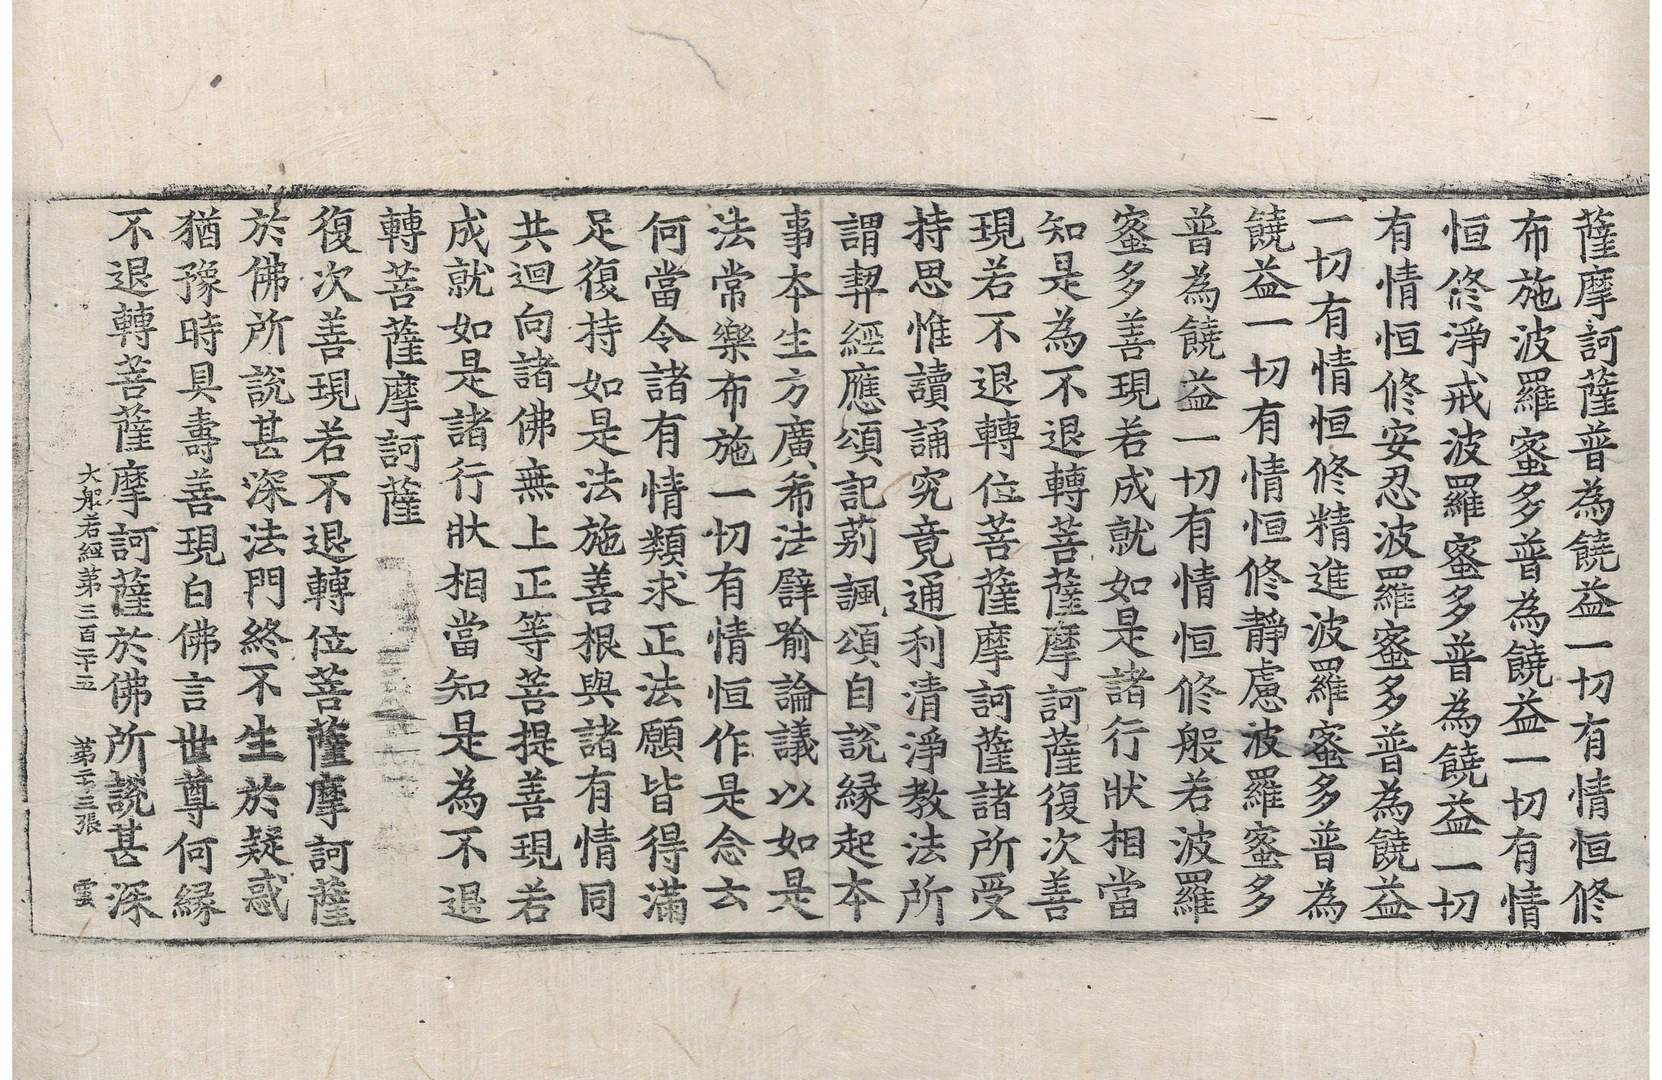 薩摩訶薩普為饒益一切有情恒修
布施波羅蜜多普為饒益一切有情
恒修淨戒波羅蜜多普為饒益一切
有情恒修安忍波羅蜜多普為饒益
一切有情恒修精進波羅蜜多普為
饒益一切有情恒修靜慮波羅蜜多
普為饒益一切有情恒修般若波羅
蜜多善現若成就如是諸行狀相當
知是為不退轉菩薩摩訶薩復次善
現若不退轉位菩薩摩訶薩諸所受
持思惟讀誦究竟通利清淨教法所
謂契經應頌記莂諷頌自說緣起本
事本生方廣希法譬喻論議以如是
法常樂布施一切有情恒作是念云
何當令諸有情類求正法願皆得滿
足復持如是法施善根與諸有情同
共迴向諸佛無上正等菩提善現若
成就如是諸行狀相當知是為不退
轉菩薩摩訶薩
復次善現若不退轉位菩薩摩訶薩
於佛所說甚深法門終不生於疑惑
猶豫時具壽善現白佛言世尊何緣
不退轉菩薩摩訶薩於佛所說甚深
大般若經第三百二十五 第二十三張 雲